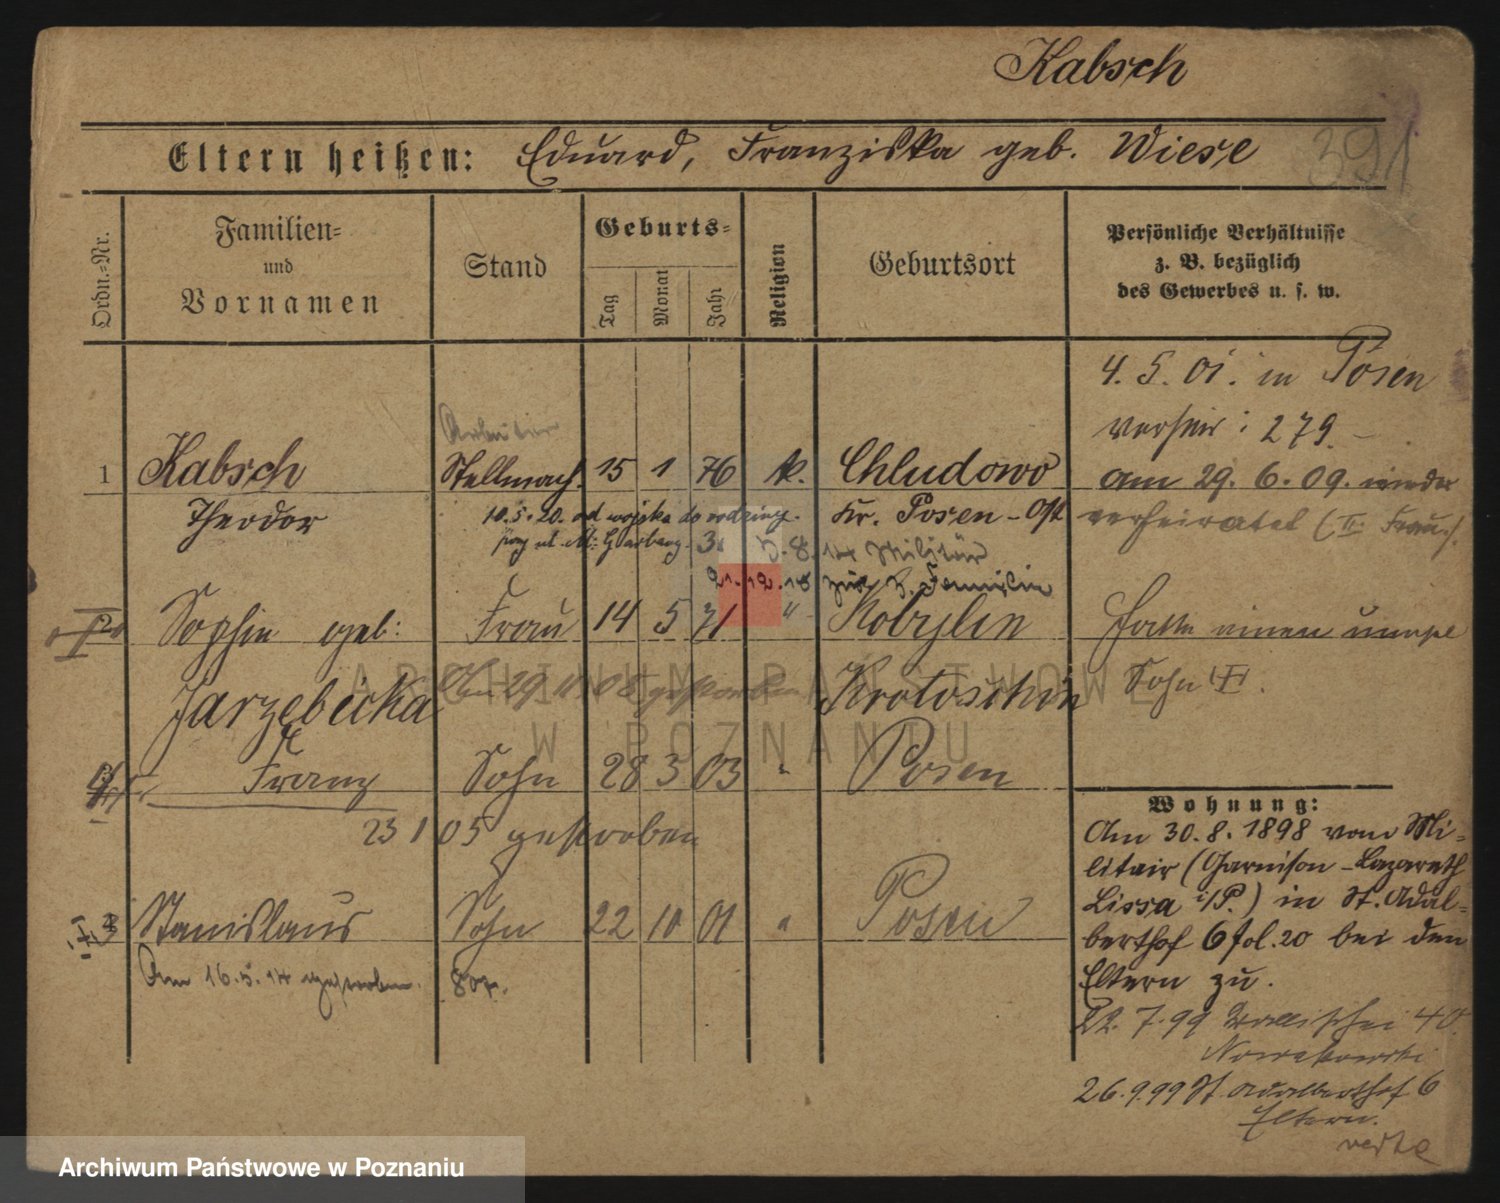 Kabsch
391
Eltern heißen: Eduard, Franziska geb. Wiese
Ordn.-Nr.
Familien-
und
Vornamen
Stand
Geburts-
Tag
Monat
Jahr
Religion
Geburtsort
Persönliche Verhältnisse
z. B. bezüglich
des Gewerbes u. s. w.
4. 5. 01. in Posen
verheir: 279.
Arbeiter
1 Kabsch Stellmach. 15 1 76 k. Chludowo am 29. 6. 09. wieder
Theodor 10.5.20. od wojska do rodziny. Kr. Posen-Ost verheiratet (II. Frau).
5. 8. 14 Militär
21.12.18 zur Familie
2 Sophie geb: Frau 14 5 71 " Kobylin hatte einen unehel
Jarzębicka Am 29 11 08 gestorben Krotoschin Sohn
Franz Sohn 28 3 03 " Posen
23 1 05 gestorben
3 Stanislaus Sohn 22 10 01 " Posen
Am 16.5.14 gestorben. 807.
Wohnung:
Am 30.8.1898 vom Mi-
litair (Garnison-Lazareth
Lissa i/P.) in St. Adal-
berthof 6 fol. 20 bei den
Eltern zu.
22.7.99 Wallischei 40.
Nowakowski
26.9.99 St. Adalberthof 6
Eltern.
verte
ARCHIWUM PAŃSTWOWE
W POZNANIU
Archiwum Państwowe w Poznaniu